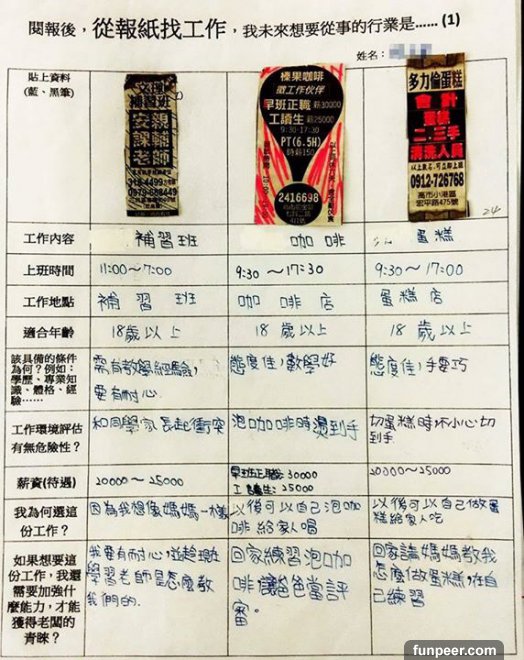 閱報後，從報紙找工作，我未來想要從事的行業是……(1)
姓名：
貼上資料
(藍、黑筆)
文理
補習班
安親
課輔
老師
榛果咖啡
徵工作伙伴
早班正職 薪30000
工讀生 薪25000
9:30-17:30
PT(6.5H)
時薪150
2416698
多力倫蛋糕
會計
蛋糕
二.三手
清洗人員
以上供食.可立即上班
0912-726768
高市小港區
宏平路475號
工作內容
補習班
咖啡
蛋糕
上班時間
11:00~7:00
9:30~17:30
9:30~17:00
工作地點
補習班
咖啡店
蛋糕店
適合年齡
18歲以上
18歲以上
18歲以上
該具備的條件
為何？例如：
學歷、專業知
識、體格、經
驗……
需有教學經驗，
要有耐心.
態度佳，數學好
態度佳，手要巧
工作環境評估
有無危險性？
和同學家長起衝突
泡咖啡時燙到手
切蛋糕時不小心切
到手.
薪資(待遇)
20000~25000
早班正職:30000
工讀生:25000
20000~25000
我為何選這
份工作？
因為我想像媽媽一樣
以後可以自己泡咖
啡給家人喝
以後可以自己做蛋
糕給家人吃
如果想要這
份工作，我還
需要加強什
麼能力，才能
獲得老闆的
青睞？
我要有耐心，並趁現在
學習老師是怎麼教
我們的.
回家練習泡咖
啡讓爸爸當評
審。
回家請媽媽教我
怎麼做蛋糕，在自
己練習
funpeer.com